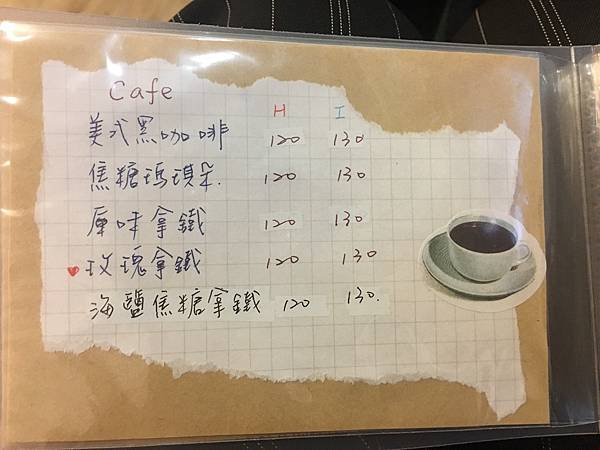 Cafe
H I
美式黑咖啡 120 130
焦糖瑪琪朵. 120 130
原味拿鐵 120 130
玫瑰拿鐵 120 130
海鹽焦糖拿鐵 120 130.